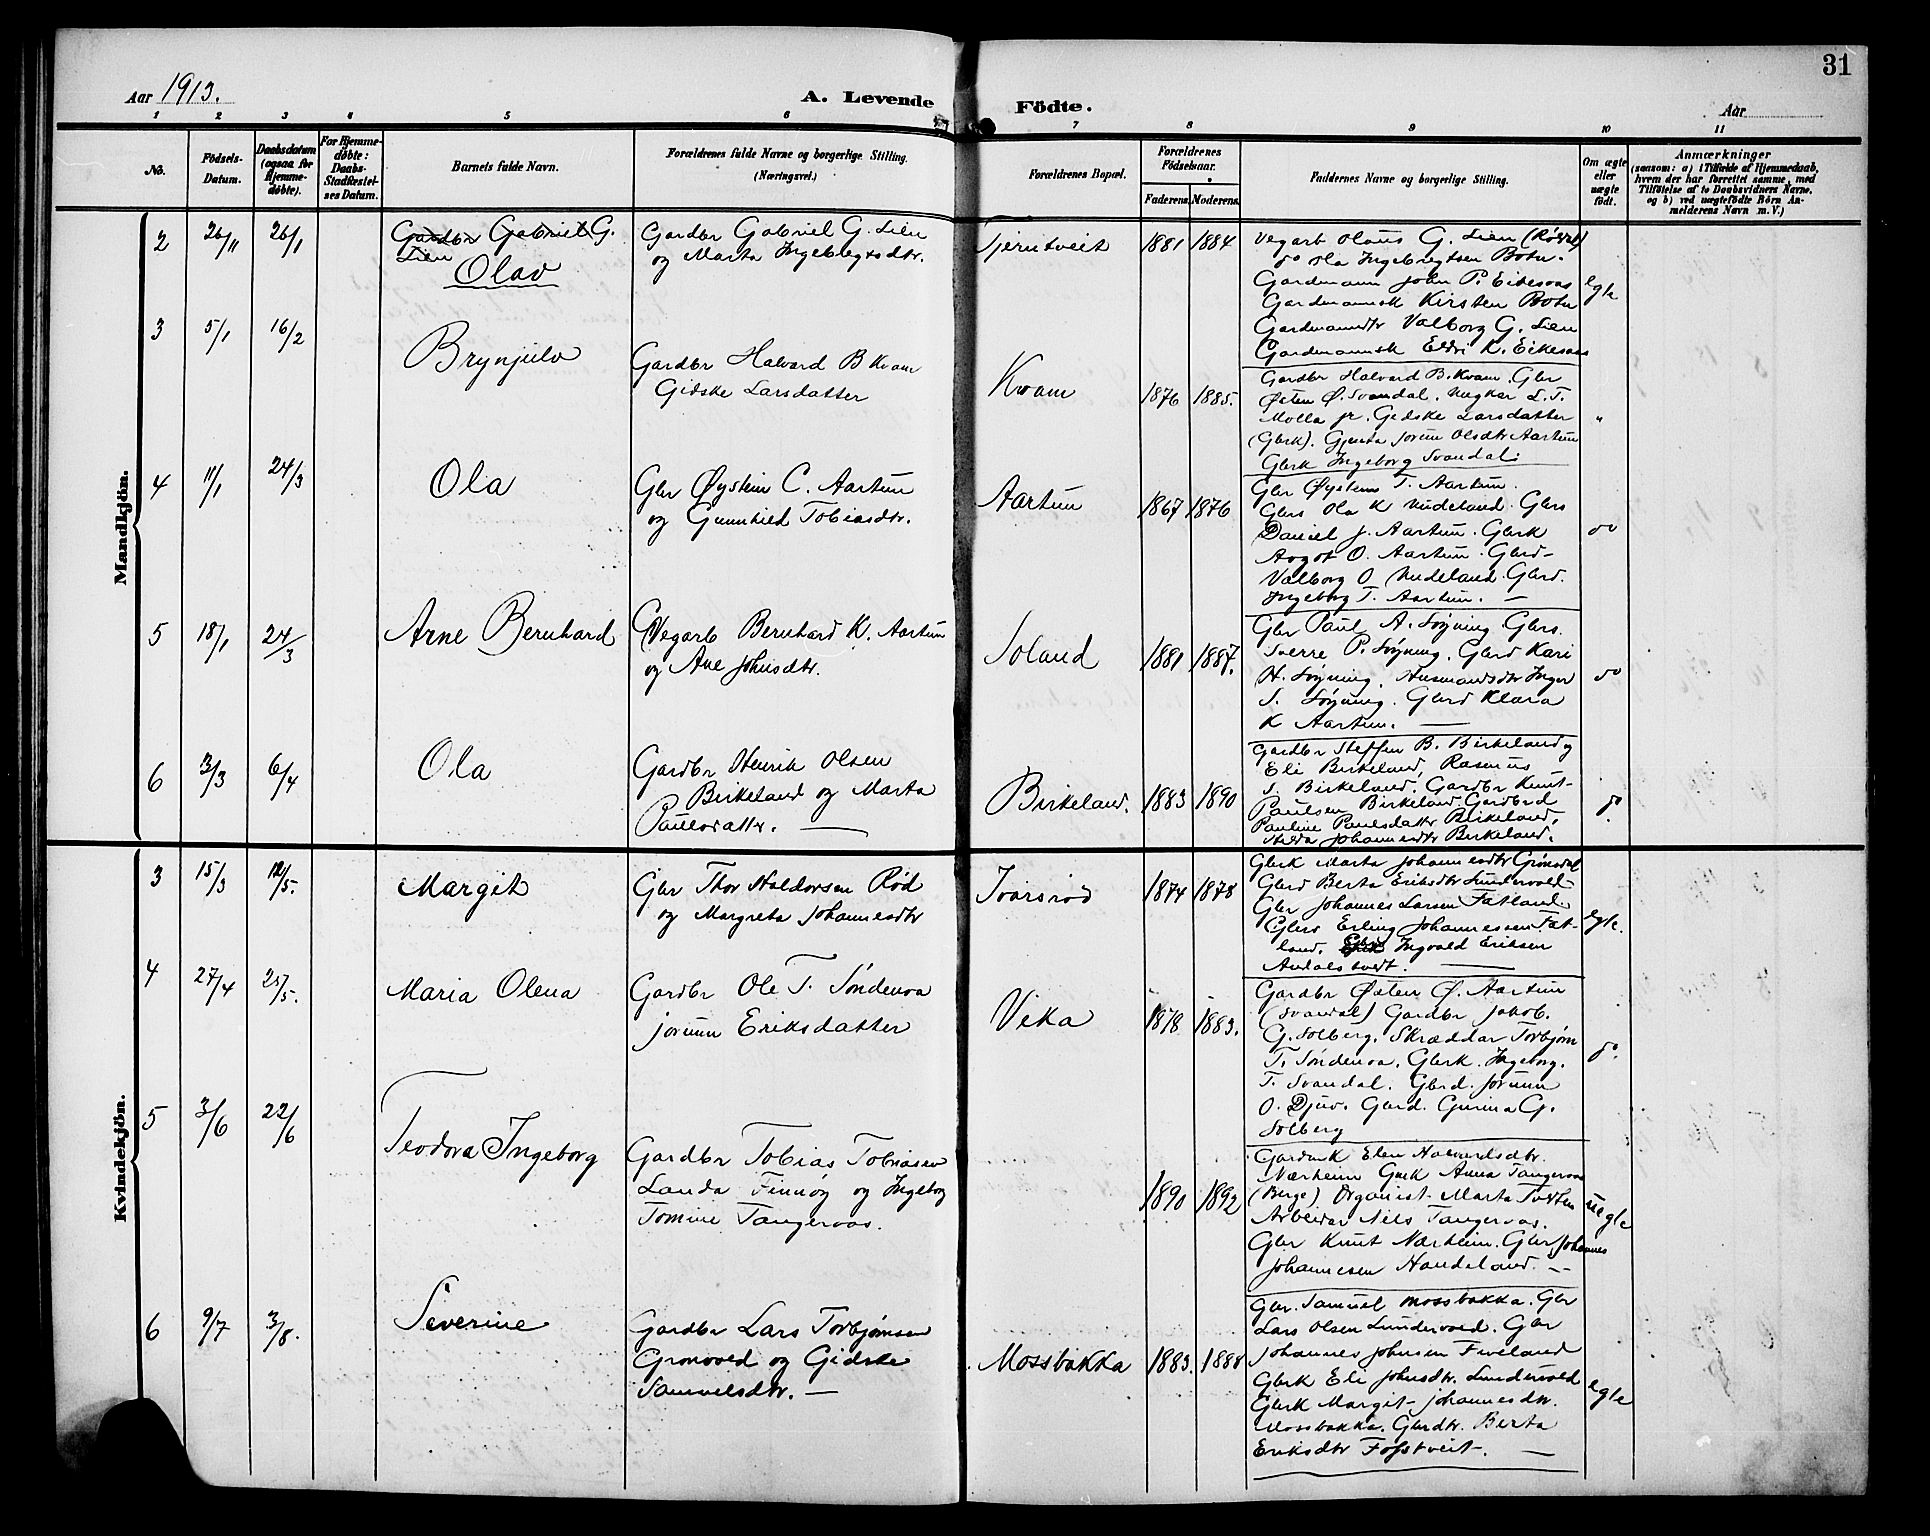 31
Aar 1913.
A. Levende Födte.
Aar
1 2 3 4 5 6 7 8 9 10 11
No.
Födsels-Datum.
Daabsdatum (ogsaa for Hjemme-döbte).
For Hjemme-döbte: Daabs-Stadfæstel-ses Datum.
Barnets fulde Navn.
Forældrenes fulde Navne og borgerlige Stilling.
(Næringsvei.)
Forældrenes Bopæl.
Forældrenes Födselsaar.
Faderens. Moderens.
Faddernes Navne og borgerlige Stilling.
Om ægte eller uægte födt.
Anmærkninger
(saasom: a) i Tilfælde af Hjemmedaab,
hvem der har forrettet samme, med
Tilföielse af to Daabsvidners Navne,
og b) ved uægtefödte Börn An-
melderens Navn m. V.)
Mandkjön.
2 26/11 26/1
Gardbr Gabriel G.
Lien
Olav
Gardbr Gabriel G. Lien
og Marta Ingebregtsdtr.
Tjerntveit 1881 1884
Vegarb Olaus G. Lien
do Ola Ingebregtsen Botn.
Gardmann John P. Eikesaas
Gardmannsk Kirsten Botn
Gardmannsdtr Valborg G. Lien
Gardmannsk Eldri K. Eikesaas
egte
3 5/1 16/2
Brynjulv
Gardbr Halvard B Kvam
Gidske Larsdatter
Kvam 1876 1885.
Gardbr Halvard B. Kvam. Gbr
Østen Ø. Svandal. Ungkar L. T.
Molla jr. Gidske Larsdatter
(Gbrk). Gjenta Jorun Olsdtr Aartun
Gbrk Ingeborg Svandal.
"
4 11/1 24/3
Ola
Gbr Øystein C. Aartun
og Gunnhild Tobiasdtr.
Aartun 1867 1876
Gbr Øystein T. Aartun.
Gbrs Ola K Nudeland. Gbrs
Daniel J. Aartun. Gbrk
Aagot O. Aartun. Gbrd-
Valborg O. Nudeland. Gbrd.
Ingeborg T. Aartun. —
do
5 18/1 24/3
Arne Bernhard
Vegarb Bernhard K. Aartun
og Ane Johnsdtr.
Soland 1881 1887.
Gbr Paul A. Søyning Gbrs.
Sverre P. Søyning. Gbrd Kari
H. Søyning. Husmandsdtr Inger
S. Søyning. Gbrd Klara
K Aartun. —
do
6 3/3 6/4
Ola
Gardbr Henrik Olsen
Birkeland og Marta
Paulsdattr. —
Birkeland. 1883 1890
Gardbr Steffen B. Birkeland og
Eli Birkeland, Rasmus
S. Birkeland. Gardbr Knut-
Paulsen Birkeland. Gardbrd
Pauline Paulsdattr Birkeland,
Hilda Johannesdtr Birkeland.
do
Kvindekjön.
3 15/3 12/5.
Margit
Gbr Thor Haldorsen Rød
og Margreta Johannesdtr
Ivarsrød 1874 1878
Gbrk Marta Johannesdtr Grønsdal
Gbrd Berta Eriksdtr Lundervold
Gbr Johannes Larsen Fatland
Gbrs Erling Johannessen Fat-
land. Gbrs Ingvald Eriksen
egte.
4 27/4 25/5.
Maria Olena
Gardbr Ole T. Søndenaa
Jorunn Eriksdatter
Vika 1878 1883.
Gardbr Østen Ø. Aartun
(Svandal) Gardbr Jakob.
G. Solberg. Skræddar Torbjørn
T. Søndenaa. Gbrk. Ingeborg.
T. Svandal. Gbrd. Jorunn
O. Djuv. Gard. Gurina G.
Solberg
do.
5 3/6 22/6
Teodora Ingeborg
Gardbr Tobias Tobiasen
Landa Finnøy og Ingeborg
Tomine Tangeraas.
1890 1892
Gardmk Elen Halvardsdtr.
Nærheim Gmk Anna Tangeraas
(Berge) Organist Marta
Arbeider Nils Tangeraas.
Gbr Knut Nærheim. Gbr Johannes
Johannesen Handeland. —
uegte
6 9/7 3/8.
Severine
Gardbr Lars Torbjørnsen
Grønvold og Gidske
Samuelsdtr. —
Mossbakka 1883. 1888
Gbr. Samuel Mossbakka. Gbr
Lars Olsen Lundervold. Gbr
Johannes Johnsen Fiveland
Gbrk Eli Johnsdtr. Lundervold
Gbrk Margit Johannesdtr.
Mossbakka. Gbrdtr. Berta
Eriksdtr —
egte